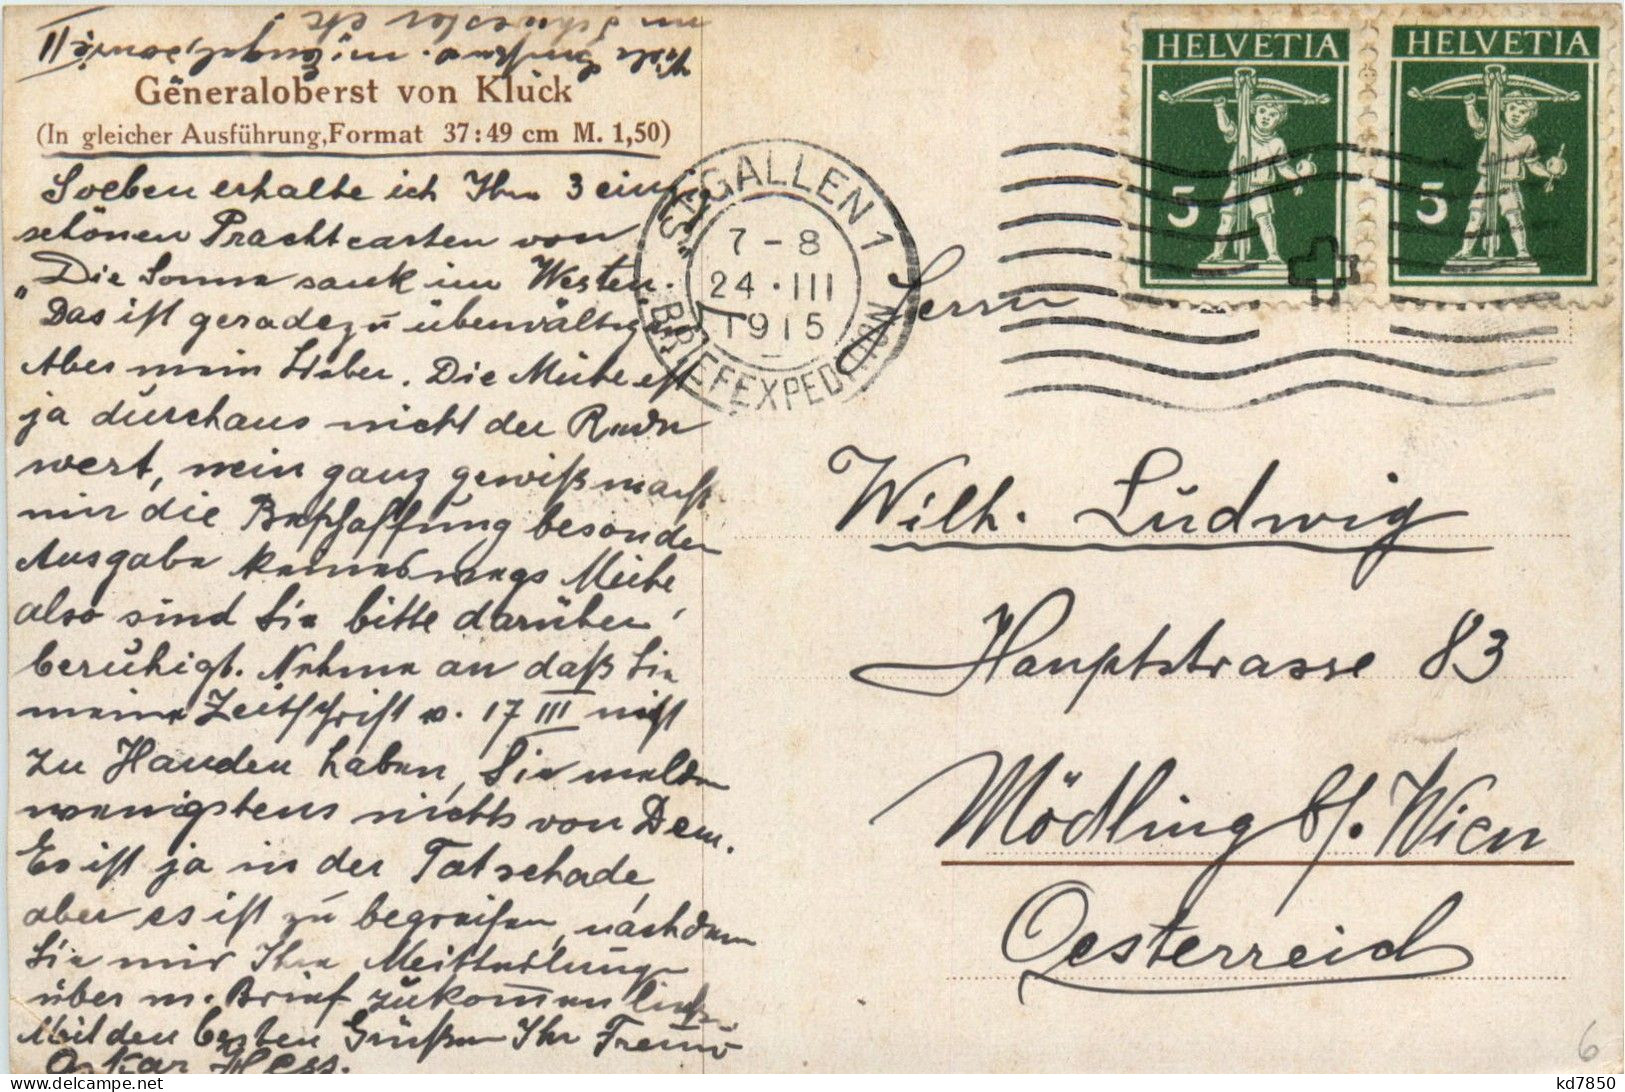 m Schwester etc
Generaloberst von Kluck
(In gleicher Ausführung, Format 37:49 cm M. 1,50)
Soeben erhalte ich Ihre 3 einzig
schönen Prachtcarten von
"Die Sonne sank im Westen.
Das ist geradezu überwältigend
Aber mein Lieber. Die Mühe ist
ja durchaus nicht der Rede
wert, nein ganz gewiß macht
mir die Beschaffung besonder
Ausgabe keineswegs Mühe,
also sind Sie bitte darüber
beruhigt. Nehme an daß Sie
meine Zeitschrift v. 17 III nicht
zu Handen haben, Sie melden
wenigstens nichts von Dem.
Es ist ja in der Tat schade,
aber es ist zu begreifen, nachdem
Sie mir Ihre Mitteilung
über m. Brief zukommen ließ.
Mit den besten Grüßen Ihr Freund
Oskar Hess.
ST. GALLEN 1
7-8
24·III
1915
BRIEFEXPEDITION
HELVETIA
5
HELVETIA
5
Herrn
Wilh. Ludwig
Hauptstrasse 83
Mödling b/. Wien
Oesterreich
6
kd7850